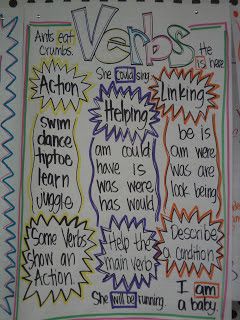 Verbs
Ants eat
crumbs.
She could sing.
He
is here
Action
swim
dance
tiptoe
learn
juggle
Some Verbs
show an
Action.
Helping
am could
have is
was were
has would
Help the
main verb
She will be running.
Linking
be is
am were
was are
look being
Describe
a condition
I am
a baby.